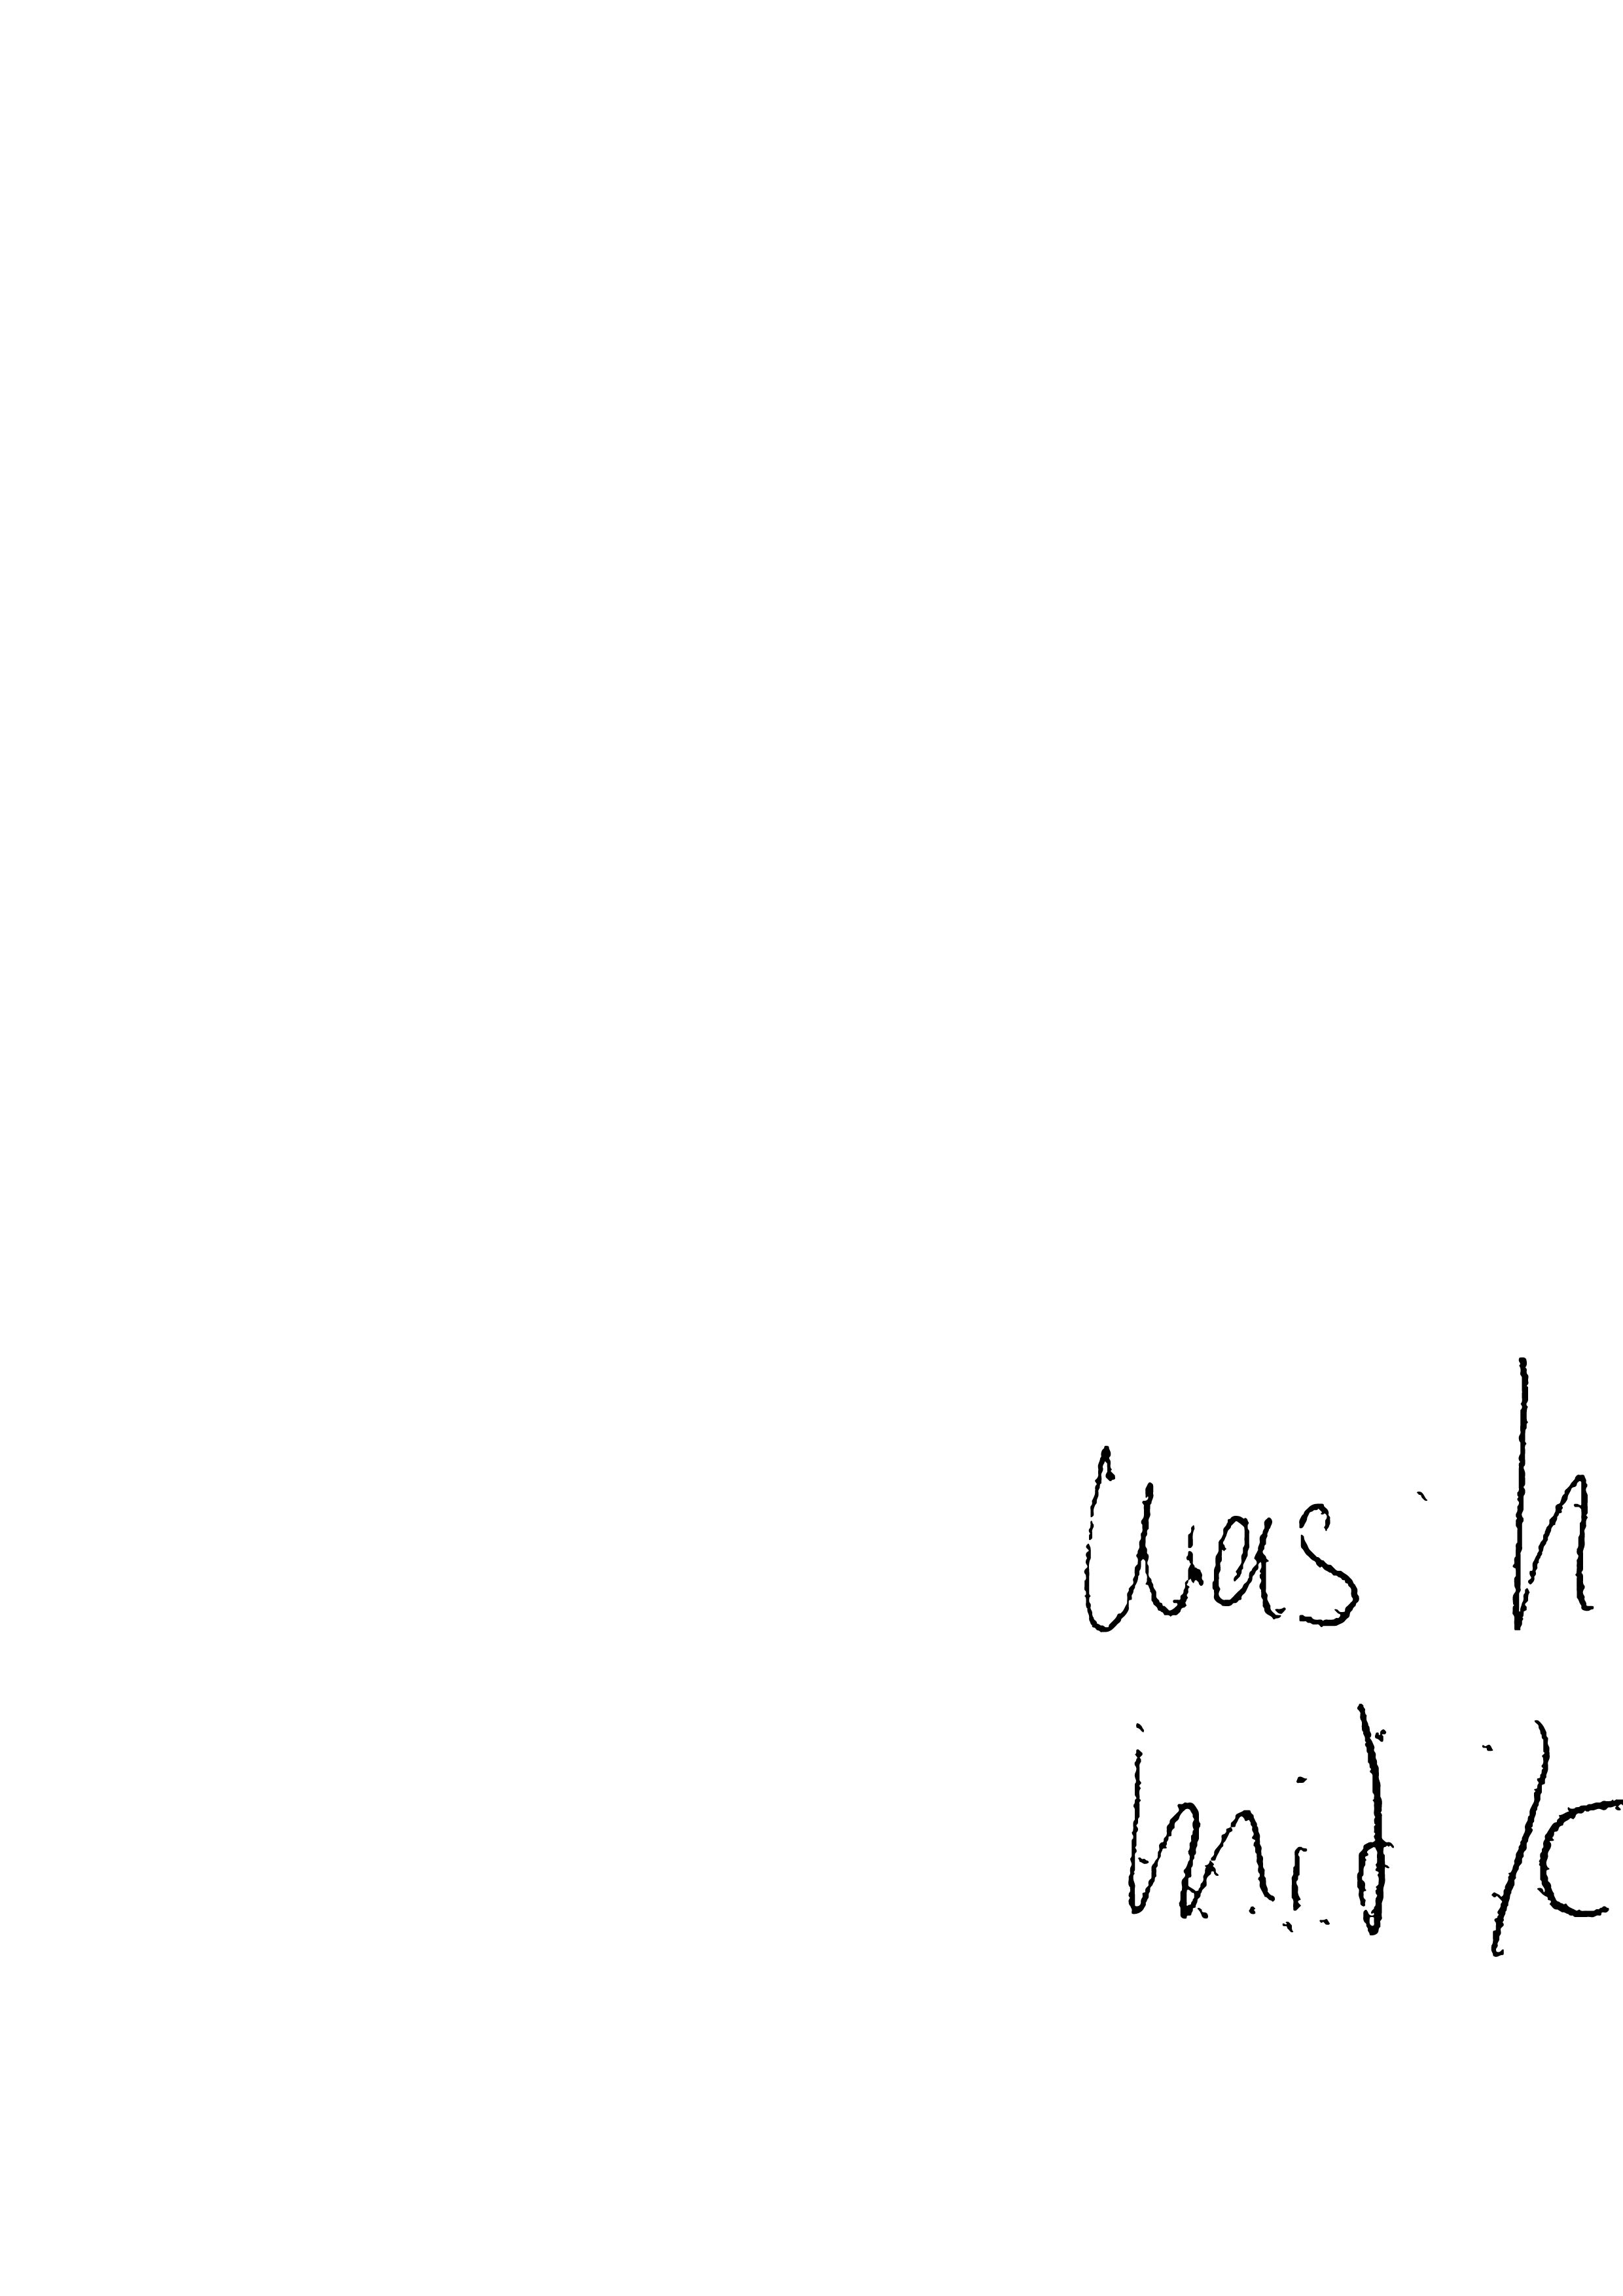 was h
mit